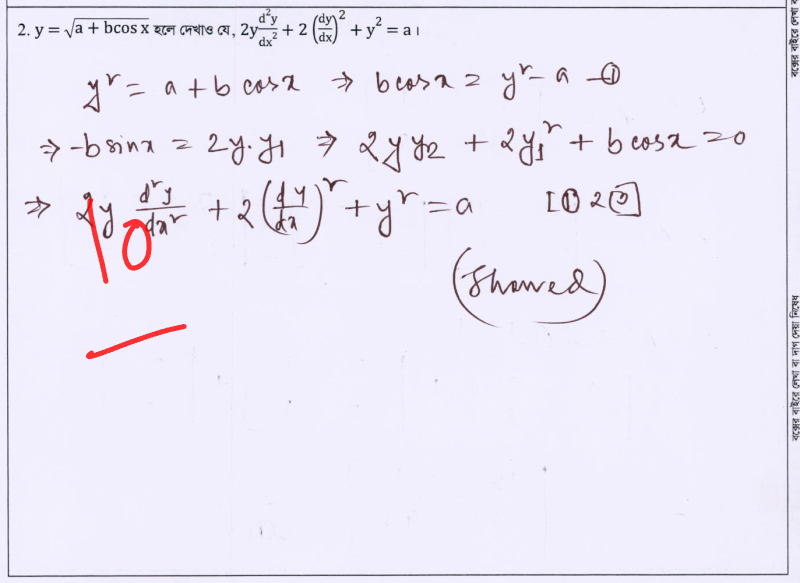 2. y = √(a + bcos x) হলে দেখাও যে, 2y d²y/dx² + 2 (dy/dx)² + y² = a ।
y² = a + b cosx ⇒ b cosx = y² - a —①
⇒ -b sinx = 2y.y₁ ⇒ 2y y₂ + 2y₁² + b cosx = 0
⇒ 2y d²y/dx² + 2 (dy/dx)² + y² = a [① ২ ②]
(Showed)
10
বক্সের বাইরে লেখা বা দাগ দেয়া নিষেধ